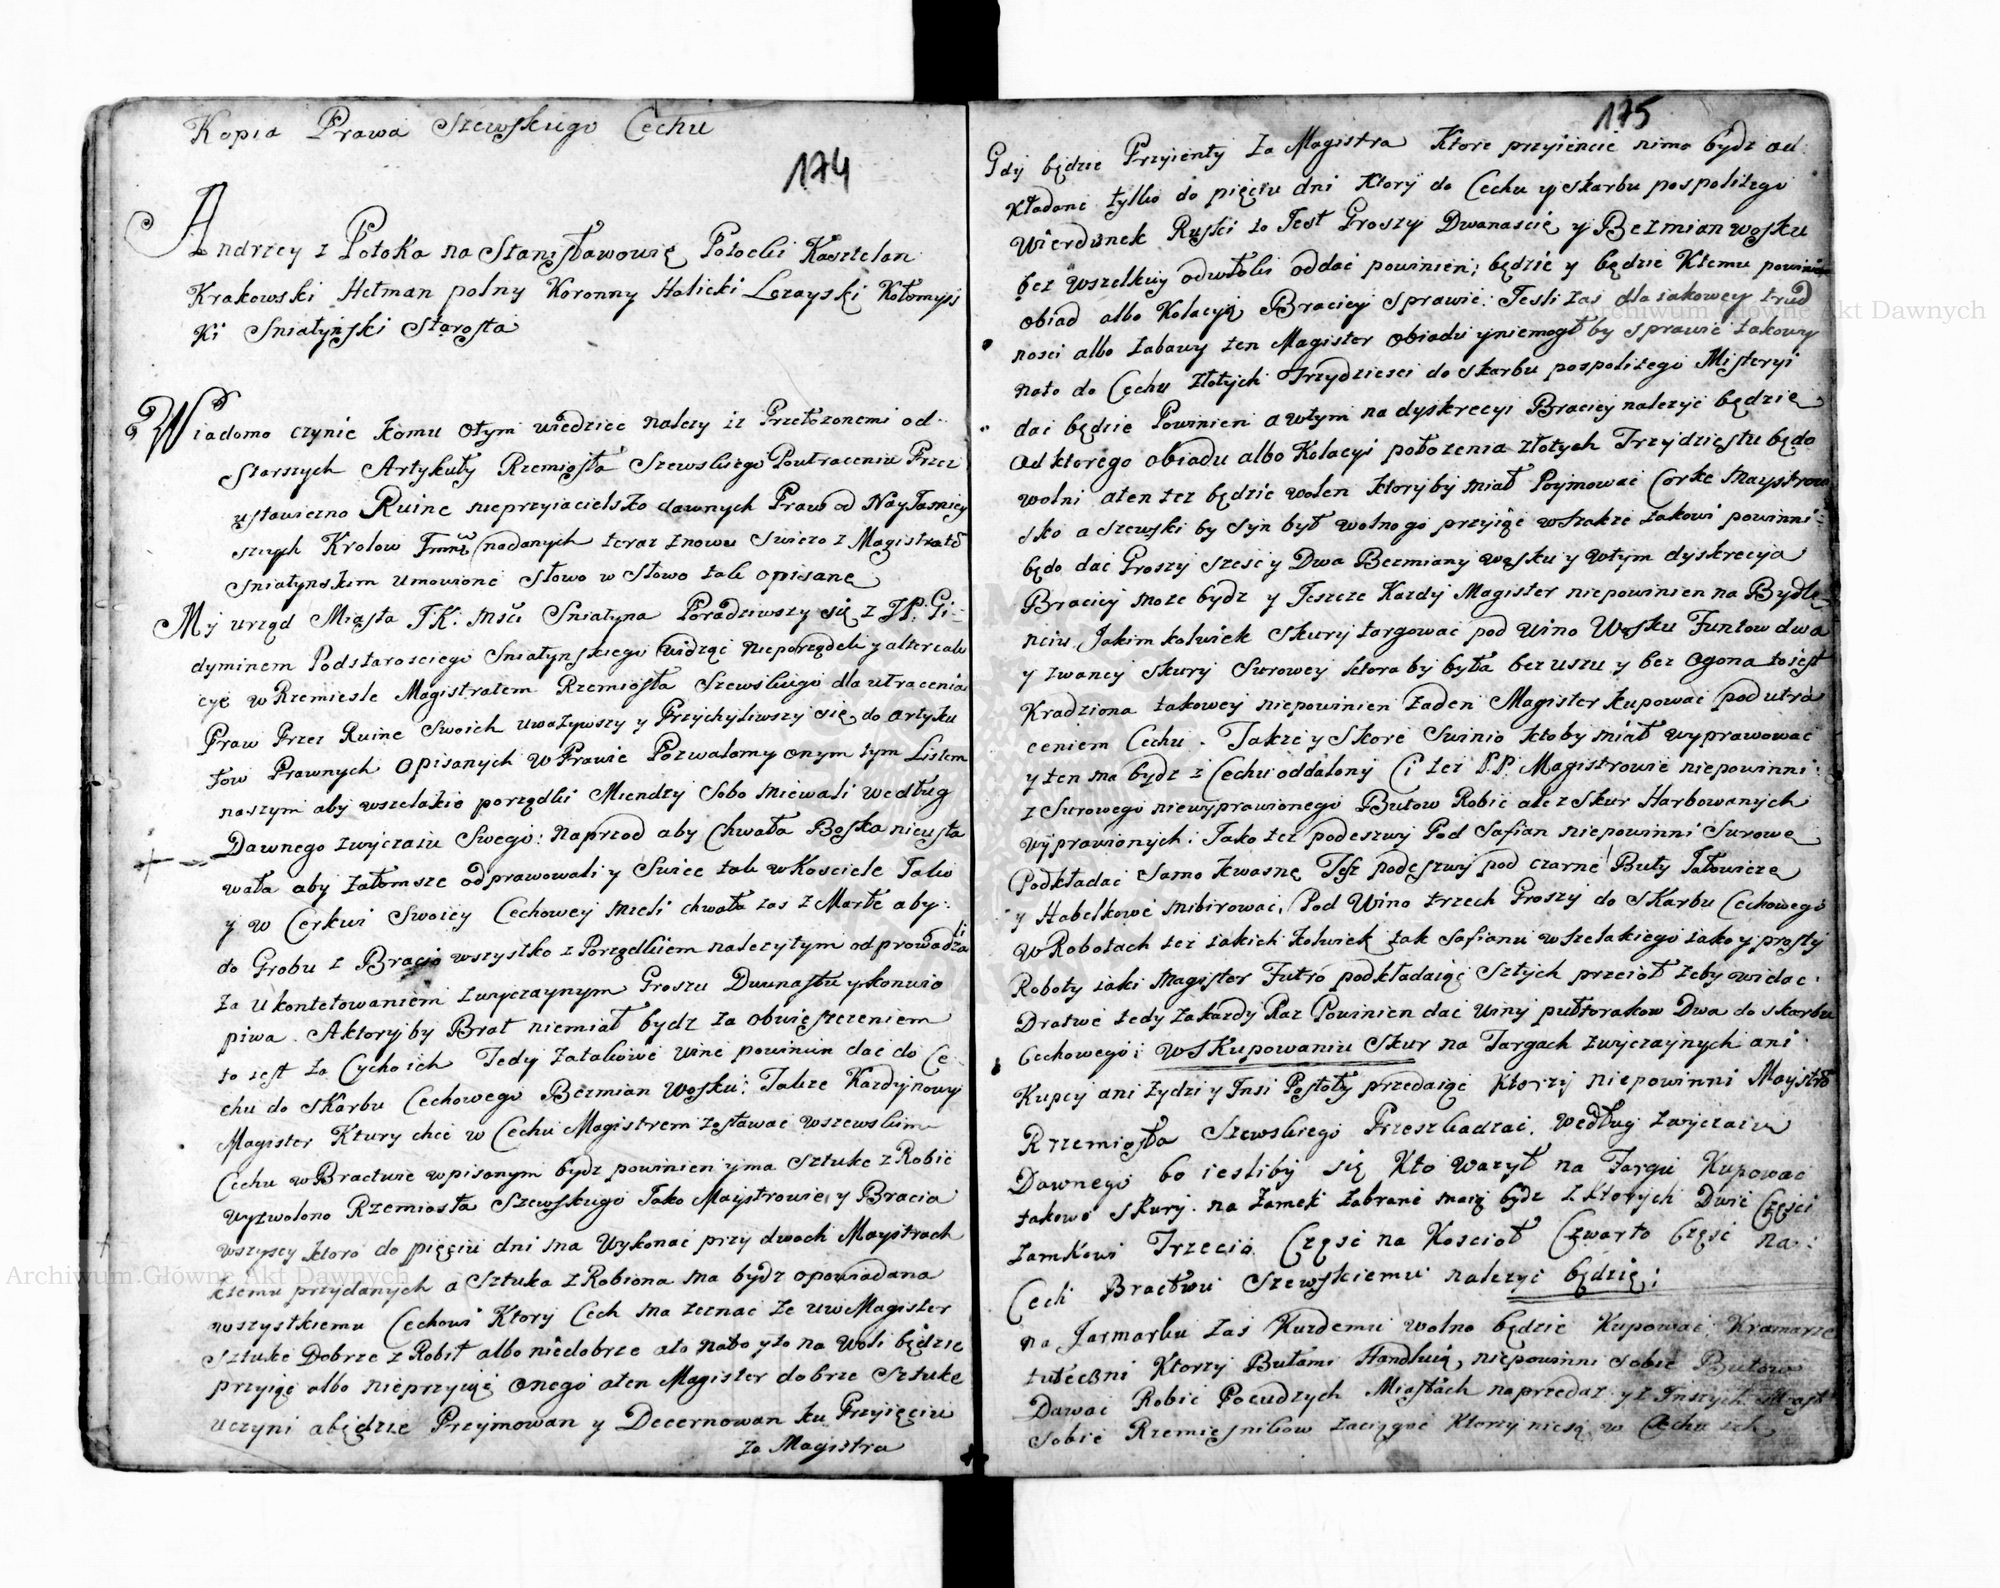 Kopia Prawa Szewskiego Cechu
174
Andrzey z Potoka na Stanisławowie Potocki Kasztelan
Krakowski Hetman polny Koronny Halicki Lezayski Kołomyis
Ki Sniatynski Starosta
Wiadomo czynie komu otym wiedziec nalezy iz Przełozonemi od
Starszych Artykuły Rzemiosła Szewskiego Poutraceniu Przez
ustawiczno Ruine nieprzyiacielsko dawnych Praw od Nayiasniey
szych Krolow nadanych teraz znowu Swiezo z Magistratē
Sniatynskim umowione Słowo w Słowo tak opisane
My urząd Miasta J.K. Mści Sniatyna Poradziwszy się z JP. Gi-
dyminem Podstarosciego Sniatynskiego widząc nieporządek y alterca
cye w Rzemiesle Magistratem Rzemiosła Szewskiego dla utracenia
Praw Przez Ruine Swoich uwazywszy y Przychyliwszy się do artyku
łow Prawnych opisanych w Prawie Pozwalamy onym tym Listem
naszym aby wszelakie porządki Miendzy Sobo miewali według
Dawnego zwyczaiu Swego: naprzod aby Chwała Boska nieusta
wała aby załomsze odprawowali y Swiec tak w Kosciele Jako
y w Cerkwi Swoiey Cechowey mieli chwała zas z Marłe aby
do Grobu z Bracio wszystko z Porządkiem nalezytym odprowadzali
za ukontetowaniem zwyczaynym Groszu Dwunastu y konwio
piwa. A ktoryby Brat niemiał bydz za obwieszczeniem
to iest za Cycho ich Tedy zatakowe wine powinien dac do Ce-
chu do Skarbu Cechowego Bezmian Wosku: Takze Kazdy nowy
Magister Ktury chce w Cechu Magistrem zostawac wszewskim
Cechu w Bractwie wpisanym bydz powinien y ma Sztuke z Robic
wyzwolono Rzemiosła Szewskiego Jako Maystrowie y Bracia
wszyscy ktoro do pięciu dni ma Wykonac przy dwoch Maystrach
ktemu przydanych a Sztuka z Robiona ma bydz opowiadana
wszystkiemu Cechowi Ktory Cech ma zeznac ze uw Magister
Sztuke Dobrze z Robił albo niedobrze a to na to y to na Woli będzie
przyięc albo nieprzyięc onego a ten Magister dobrze Sztuke
uczyni a będzie Przymowan y Decernowan ku Przyięciu
za Magistra
175
Gdy będzie Przyienty za Magistra Ktore przyiencie nima bydz od
kładane tylko do pięciu dni Ktory do Cechu y Skarbu pospolitego
Wierdunek Ruski to Jest Groszy Dwanascie y Bezmian wosku
bez wszelkiey odwłoki oddac powinien; będzie y będzie Ktemu powinien
obiad albo Kolacyią Braciey Sprawic: Jesli zas dla iakowey trud
nosci albo zabawy ten Magister obiadu y niemogł by Sprawic takowy
nato do Cechu złotych Trzydziesci do Skarbu pospolitego Misteryi
dac będzie Powinien a wtym na dyskrecyi Braciey nalezyc będzie
od ktorego obiadu albo Kolacyi połozenia złotych Trzydziestu będo
wolni a ten tez będzie wolen ktoryby miał Poymowac Corke Maystrow
sko a szewski by Syn był wolno go przyiąc wszakze takowi powinni
będo dac Groszy szesc y Dwa Bezmiany wosku y wtym dyskrecya
Braciey moze bydz y Jeszcze Kazdy Magister niepowinien na Bydle-
nciu Jakim kolwiek Skury targowac pod Wino Wosku Funtow dwa
y zwancy Skury Surowey ktora by była bez uszu y bez ogona to iest
Kradziona takowey niepowinien Zaden Magister kupowac pod utra
ceniem Cechu. Takze y Skore Swinio ktoby miał wyprawowac
y ten ma bydz z Cechu oddalony Ci tez P.P. Magistrowie niepowinni
z Surowego niewyprawionego Butow Robic ale z Skur Harbowanych
wyprawionych: Jako tez podeszwy Pod Safian niepowinni Surowe
Podkładac Samo kwasne Tesz podeszwy pod czarne Buty Jałowicze
y Habelkowe mibirowac, Pod Wino trzech Groszy do Skarbu Cechowego
w Robotach tez iakich kolwiek tak Safianu wszelakiego iako y prosty
Roboty iaki Magister Futro podkładaiąc Sztych przeciot zeby widac
Dratwe tedy zakazdy Raz Powinien dac winy pułtorakow Dwa do skarbu
Cechowego: w Skupowaniu Skur na Targach zwyczaynych ani
Kupcy ani zydzi y Insi Postoły przedaiąc Ktorzy niepowinni Maystrō
Rzemiosła Szewskiego Przeszkadzac. według zwyczaiu
Dawnego bo iesliby się Kto wazył na Targu Kupowac
takowe Skury. na Zamek zabrane maią bydz z ktorych Dwie Częsci
Zamkowi Trzecio Częsc na Koscioł Czwarto Częsc na:
Cech Bractwu Szewskiemu nalezyc będzie:
na Jarmarku zas Kazdemu wolno będzie Kupowac Kramarze
tutecżni Ktorzy Butami Handluią, niepowinni Sobie Butow
Dawac Robic Pocudzych Miastach naprzedaz y z Inszych Miast
Sobie Rzemiesnikow zaciągac Ktorzy niesą w Cechu